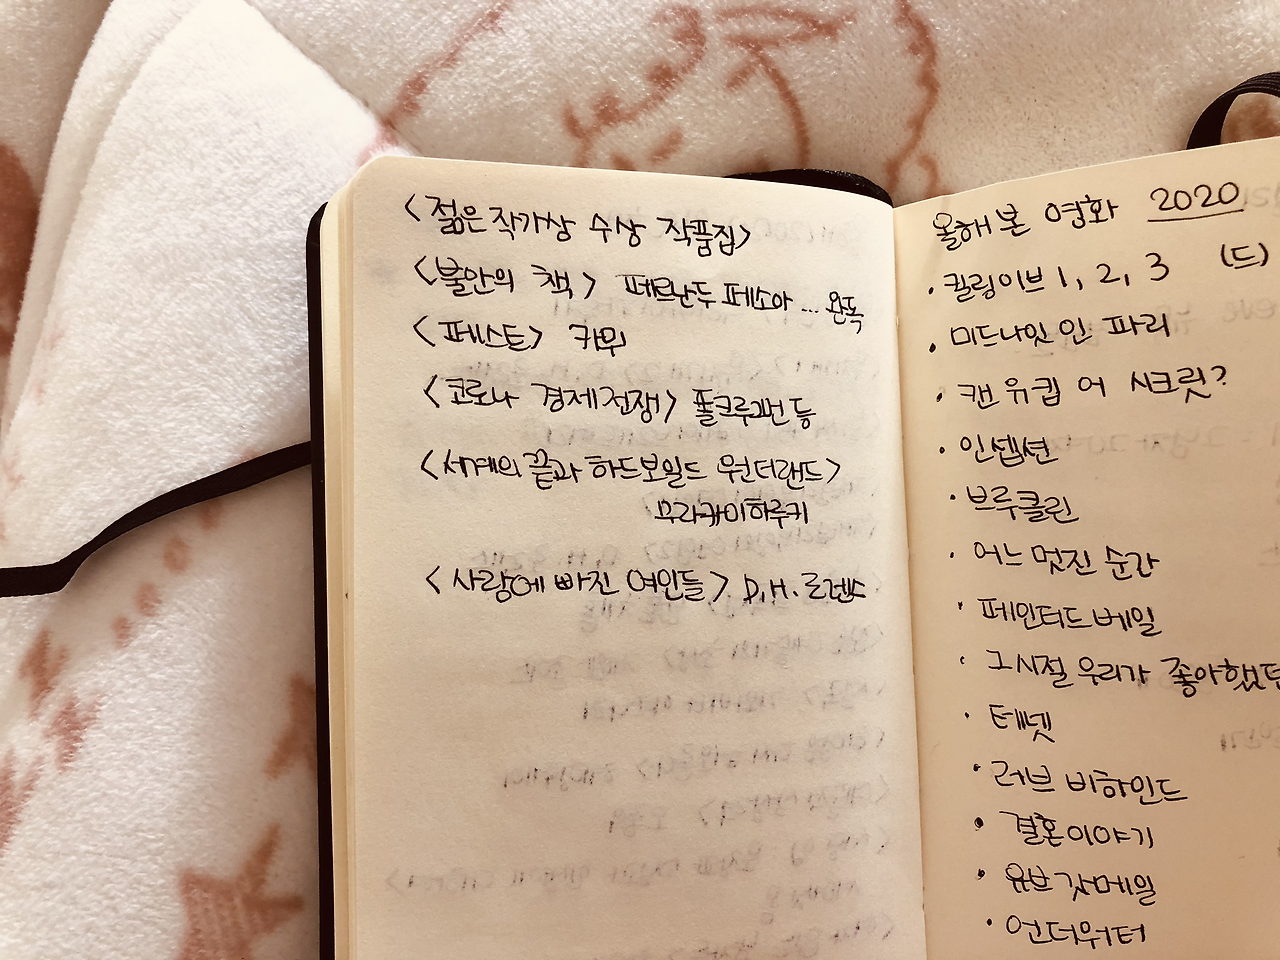 <젊은 작가상 수상 작품집>
<불안의 책> 페르난두 페소아 ... 완독
<페스트> 카뮈
<코로나 경제전쟁> 폴크루그먼 등
<세계의 끝과 하드보일드 원더랜드>
무라카미하루키
<사랑에 빠진 여인들> D.H.로렌스
올해 본 영화 2020
· 킬링이브 1, 2, 3 (드)
· 미드나잇 인 파리
· 캔 유 킵 어 시크릿?
· 인셉션
· 브루클린
· 어느 멋진 순간
· 페인티드 베일
· 그 시절 우리가 좋아했던
· 테넷
· 러브 비하인드
· 결혼이야기
· 유브 갓 메일
· 언더워터